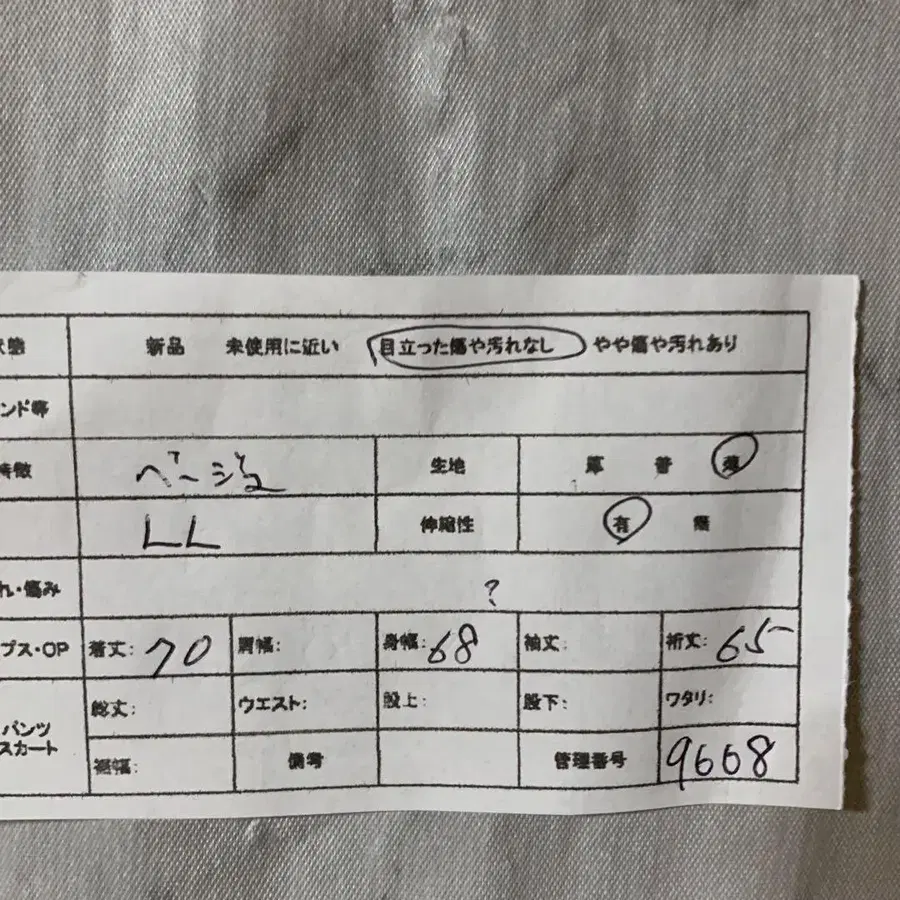 状態 新品 未使用に近い 目立った傷や汚れなし やや傷や汚れあり
ンド等
特徴 ベージュ 生地 厚 普 薄
LL 伸縮性 有 無
れ・傷み ?
プス・OP 着丈: 70 肩幅: 身幅: 68 袖丈: 裄丈: 65
パンツ 総丈: ウエスト: 股上: 股下: ワタリ:
スカート 裾幅: 備考 管理番号 9668